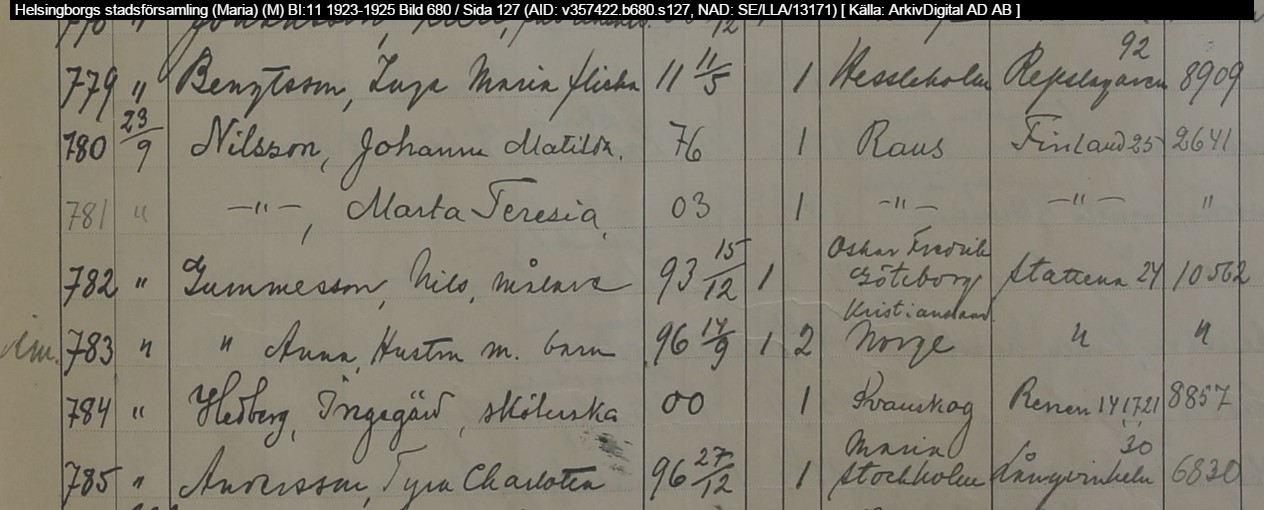 Helsingborgs stadsförsamling (Maria) (M) BI:11 1923-1925 Bild 680 / Sida 127 (AID: v357422.b680.s127, NAD: SE/LLA/13171) [ Källa: ArkivDigital AD AB ]
779 " Bengtsson, Inga Maria flicka 11 11/5 1 Hessleholm Repslagaren 92 8909
780 23/9 Nilsson, Johanna Matilda. 76 1 Raus Finland 25 2641
781 " —"—, Marta Teresia, 03 1 —"— —"— "
782 " Gummesson, Nils, målare 93 15/12 1 Oskar Fredrik Göteborg Stattena 24 10562
783 " " Anna, Hustru m. barn 96 14/9 1 2 Kristiansand Norge " "
784 " Hedberg, Ingegärd, sköterska 00 1 Svanskog Renen 14 17 21 8857
785 " Andersson, Tyra Charlotta 96 27/12 1 Maria Stockholm Långvinkeln 30 6830